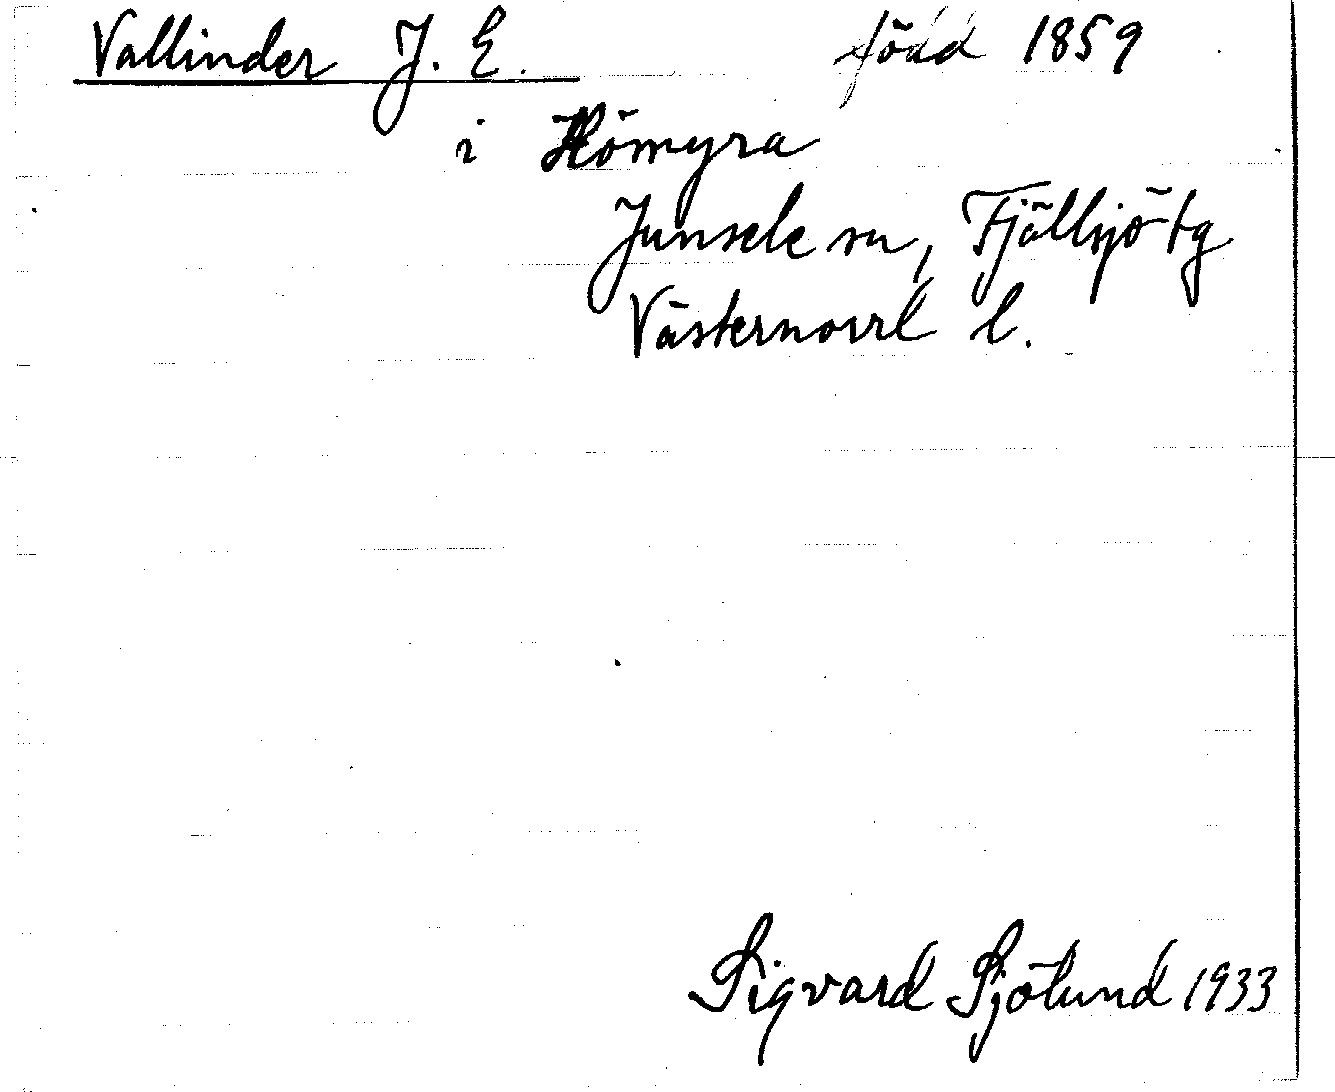 Vallinder J. E. född 1859
i Hömyra
Junsele sn, Fjällsjö tg
Västernorrl l.
Sigvard Sjölund 1933